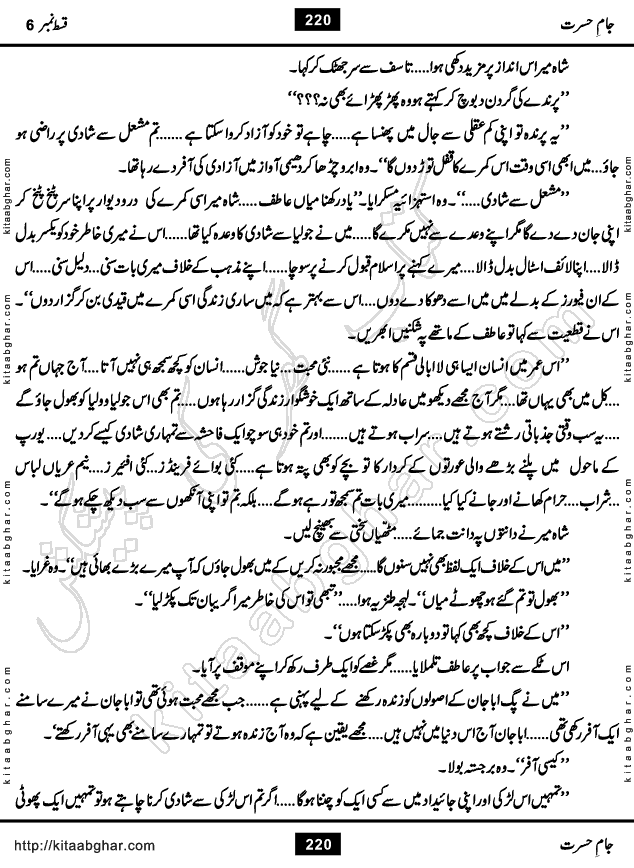 جامِ حسرت 220 قسط نمبر 6
شاہ میر اس انداز پر مزید دکھی ہوا.....تاسف سے سر جھٹک کر کہا۔
’’پرندے کی گردن دبوچ کر کہتے ہو وہ پھڑ پھڑائے بھی نہ؟؟؟‘‘
’’یہ پرندہ تو اپنی کم عقلی سے جال میں پھنسا ہے.....چاہے تو خود کو آزاد کروا سکتا ہے.......تم مشعل سے شادی پر راضی ہو
جاؤ...میں ابھی اسی وقت اس کمرے کا قفل توڑ دوں گا‘‘۔ وہ ابرو چڑھا کر دھیمی آواز میں آزادی کی آفر دے رہا تھا۔
’’مشعل سے شادی....‘‘۔ وہ استہزائیہ مسکرایا۔ ’’یاد رکھنا میاں عاطف.....شاہ میر اسی کمرے کی درو دیوار پر اپنا سر پٹخ پٹخ کر
اپنی جان دے دے گا مگر اپنے وعدے سے نہیں مکرے گا.....میں نے جولیا سے شادی کا وعدہ کیا تھا......اس نے میری خاطر خود کو یکسر بدل
ڈالا...اپنا لائف اسٹائل بدل ڈالا....میرے کہنے پر اسلام قبول کرنے پر سوچا......اپنے مذہب کے خلاف میری بات سنی...دلیل سنی.....اس
کے ان فیورز کے بدلے میں میں اسے دھوکا دے دوں.....اس سے بہتر ہے کہ میں ساری زندگی اسی کمرے میں قیدی بن کر گزار دوں‘‘۔
اس نے قطعیت سے کہا تو عاطف کے ماتھے پہ شکنیں ابھریں۔
’’اس عمر میں انسان ایسا ہی لا ابالی قسم کا ہوتا ہے......نئی محبت...نیا جوش......انسان کو کچھ سمجھ ہی نہیں آتا....آج جہاں تم ہو
...کل میں بھی یہاں تھا....مگر آج مجھے دیکھو میں عادلہ کے ساتھ ایک خوشگوار زندگی گزار رہا ہوں.....تم بھی اس جولیا وولیا کو بھول جاؤ گے
.....یہ سب وقتی جذباتی رشتے ہوتے ہیں...سراب ہوتے ہیں.......اور تم خود ہی سوچو ایک فاحشہ سے تمہاری شادی کیسے کر دیں....یورپ
کے ماحول میں پلنے بڑھے والی عورتوں کے کردار کا تو بچے کو بھی پتہ ہوتا ہے......کئی بوائے فرینڈز...کئی افئیرز....نیم عریاں لباس
...شراب....حرام کھانے اور جانے کیا کیا.........میری بات تم سمجھ تو رہے ہو گے....بلکہ تم تو اپنی آنکھوں سے سب دیکھ چکے ہو گے‘‘۔
شاہ میر نے دانتوں پہ دانت جمائے.....مٹھیاں سختی سے بھینچ لیں۔
’’میں اس کے خلاف ایک لفظ بھی نہیں سنوں گا.....مجھے مجبور نہ کریں کے میں بھول جاؤں کہ آپ میرے بڑے بھائی ہیں‘‘۔ وہ غرایا۔
’’بھول تو تم گئے ہو چھوٹے میاں‘‘۔ لہجہ طنزیہ ہوا.....’’تبھی تو اس کی خاطر میرا گریبان تک پکڑ لیا‘‘۔
’’اس کے خلاف کچھ بھی کہا تو دوبارہ بھی پکڑ سکتا ہوں‘‘۔
اس ٹکے سے جواب پر عاطف تلملایا......مگر غصے کو ایک طرف رکھ کر اپنے موقف پر آیا۔
’’میں نے پگ ابا جان کے اصولوں کو زندہ رکھنے کے لیے پہنی ہے......جب مجھے محبت ہوئی تھی تو ابا جان نے میرے سامنے
ایک آفر رکھی تھی......ابا جان آج اس دنیا میں نہیں ہیں....مجھے یقین ہے کہ وہ آج زندہ ہوتے تو تمہارے سامنے بھی یہی آفر رکھتے‘۔
’’کیسی آفر‘‘۔ وہ برجستہ بولا۔
’’تمہیں اس لڑکی اور اپنی جائیداد میں سے کسی ایک کو چننا ہو گا.....اگر تم اس لڑکی سے شادی کرنا چاہتے ہو تو تمہیں ایک پھوٹی
جامِ حسرت 220 http://kitaabghar.com
kitaabghar.com
kitaabghar.com
kitaabghar.com
kitaabghar.com
kitaabghar.com
kitaabghar.com
kitaabghar.com
kitaabghar.com
کتاب گھر کی پیشکش
kitaabghar.com